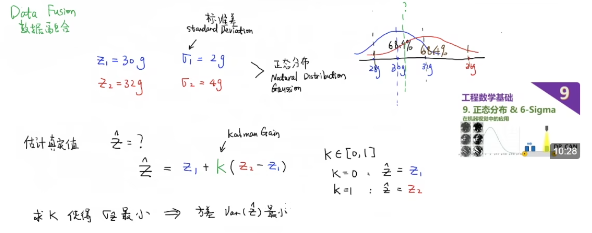 Data Fusion
数据融合
标准差
Standard Deviation
z₁ = 30g  σ₁ = 2g
z₂ = 32g  σ₂ = 4g
正态分布
Natural Distribution
Gaussian
68.4%
28g 30g
工程数学基础
9. 正态分布 & 6-Sigma
9
10:28
估计真实值 ẑ = ?
Kalman Gain
ẑ = z₁ + K(z₂ - z₁)
K∈[0,1]
K=0 : ẑ = z₁
K=1 : ẑ = z₂
求 K 使得 σẑ 最小 ⇒ 方差 Var(ẑ) 最小